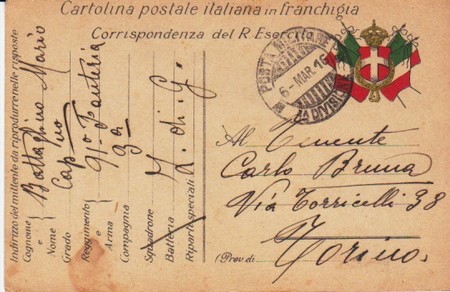 Cartolina postale italiana in franchigia
Corrispondenza del R. Esercito
POSTA MILITARE
6 - MAR. 16
DIVISIONE
Indirizzo del mittente da riprodurre nelle risposte
Cognome e Nome Battaglino Mario
Grado Cap no
Reggimento e Arma 91o Fanteria
Compagnia 3a
Squadrone
Batteria
Riparti speciali Z. di G.
Al Tenente
Carlo Bruna
Via Torricelli 38
(Prov di Torino